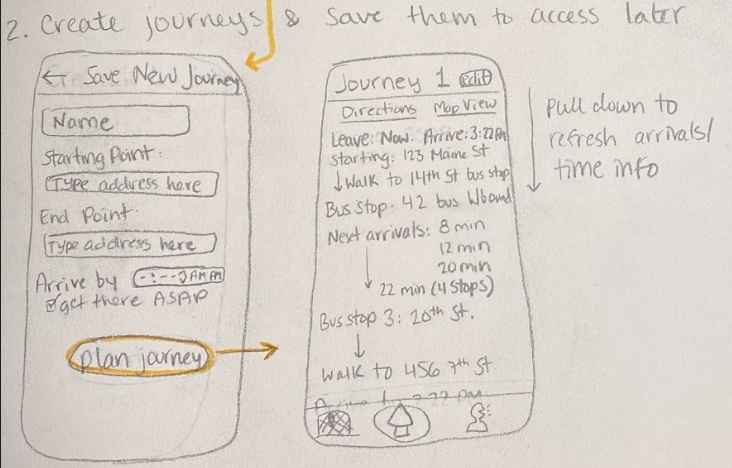 2. Create journeys & save them to access later
← Save New Journey
Name
Starting Point:
Type address here
End Point:
Type address here
Arrive by -:-- AM PM
get there ASAP
plan journey
Journey 1 edit
Directions Map View
Leave: Now. Arrive: 3:22 PM
Starting: 123 Maine St
↓ Walk to 14th St bus stop
Bus stop: 42 bus Wbound
Next arrivals: 8 min
12 min
20 min
22 min (4 stops)
Bus stop 3: 20th St.
Walk to 456 7th St
pull down to
refresh arrivals/
time info